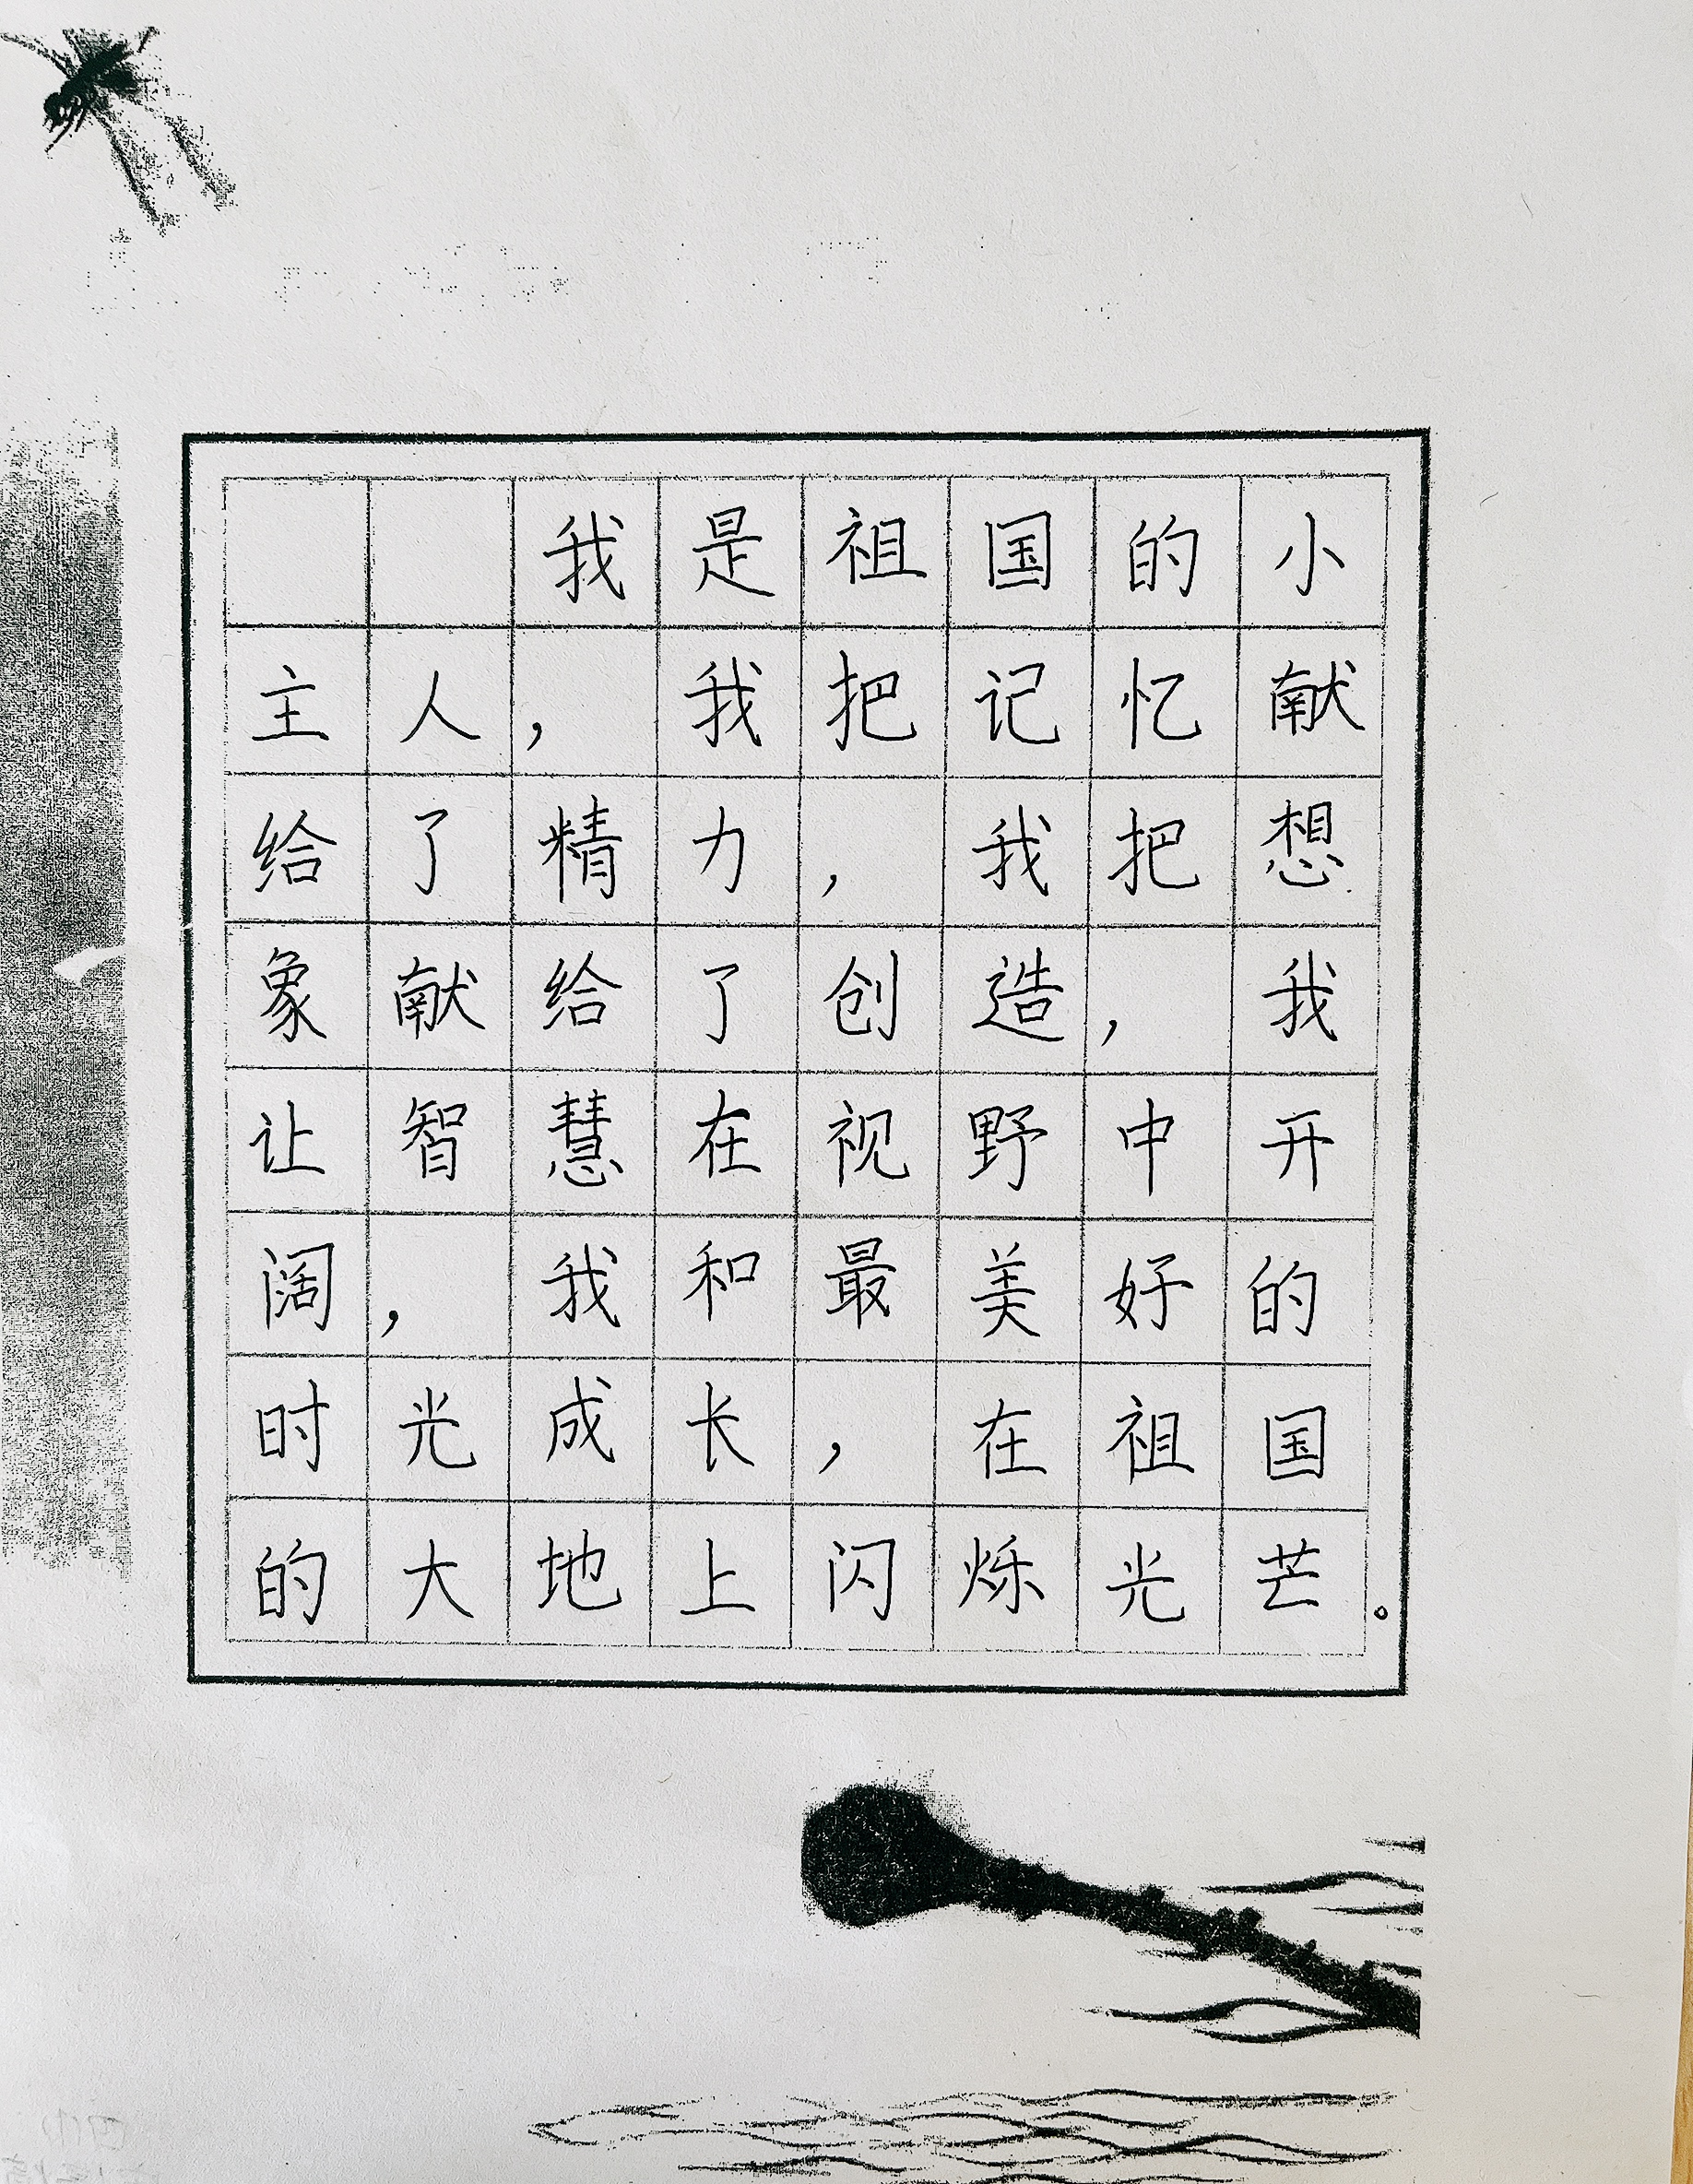 我是祖国的小
主人，我把记忆献
给了精力，我把想
象献给了创造，我
让智慧在视野中开
阔，我和最美好的
时光成长，在祖国
的大地上闪烁光芒。